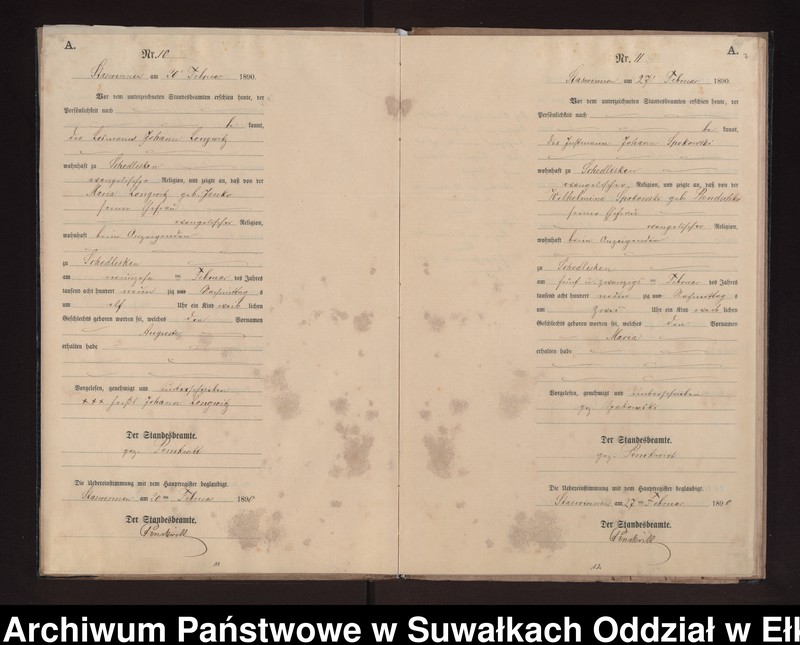 A.
Nr. 10
am 20ᵗ Februar 1890.
Vor dem unterzeichneten Standesbeamten erschien heute, der
Persönlichkeit nach
be kannt,
Johann
wohnhaft zu Schedlisken
evangelischer Religion, und zeigte an, daß von der
Maria geb.
seiner Ehefrau
evangelischer Religion,
wohnhaft beim Anzeigenden
zu Schedlisken
am neunzehn ten Februar des Jahres
tausend acht hundert neun zig um Nachmittag s
um elf Uhr ein Kind weib lichen
Geschlechts geboren worden sei, welches den Vornamen
Auguste
erhalten habe
Vorgelesen, genehmigt und unterschrieben
+++ Johann
Der Standesbeamte.
gez.
Die Uebereinstimmung mit dem Hauptregister beglaubigt.
am 20ten Februar 1890
Der Standesbeamte.
11
A.
Nr. 11
am 27ᵗ Februar 1890.
Vor dem unterzeichneten Standesbeamten erschien heute, der
Persönlichkeit nach
be kannt,
Johann
wohnhaft zu Schedlisken
evangelischer Religion, und zeigte an, daß von der
Wilhelmine geb.
seiner Ehefrau
evangelischer Religion,
wohnhaft beim Anzeigenden
zu Schedlisken
am fünf un zwanzigs ten Februar des Jahres
tausend acht hundert neun zig um Nachmittag s
um zwei Uhr ein Kind weib lichen
Geschlechts geboren worden sei, welches den Vornamen
Maria
erhalten habe
Vorgelesen, genehmigt und unterschrieben
gez.
Der Standesbeamte.
gez.
Die Uebereinstimmung mit dem Hauptregister beglaubigt.
am 27ten Februar 1890
Der Standesbeamte.
12
Archiwum Państwowe w Suwałkach Oddział w Ełk